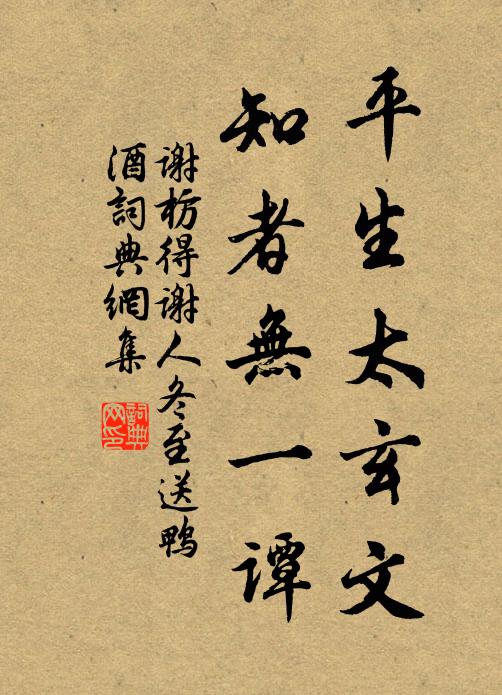 平生太玄文
知者無一譚
謝枋得謝人冬至送鴨
酒詞典網集
詞典
网印